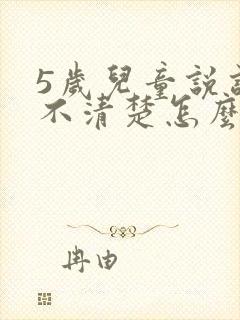 5歲兒童說話
不清楚怎麼
冉由